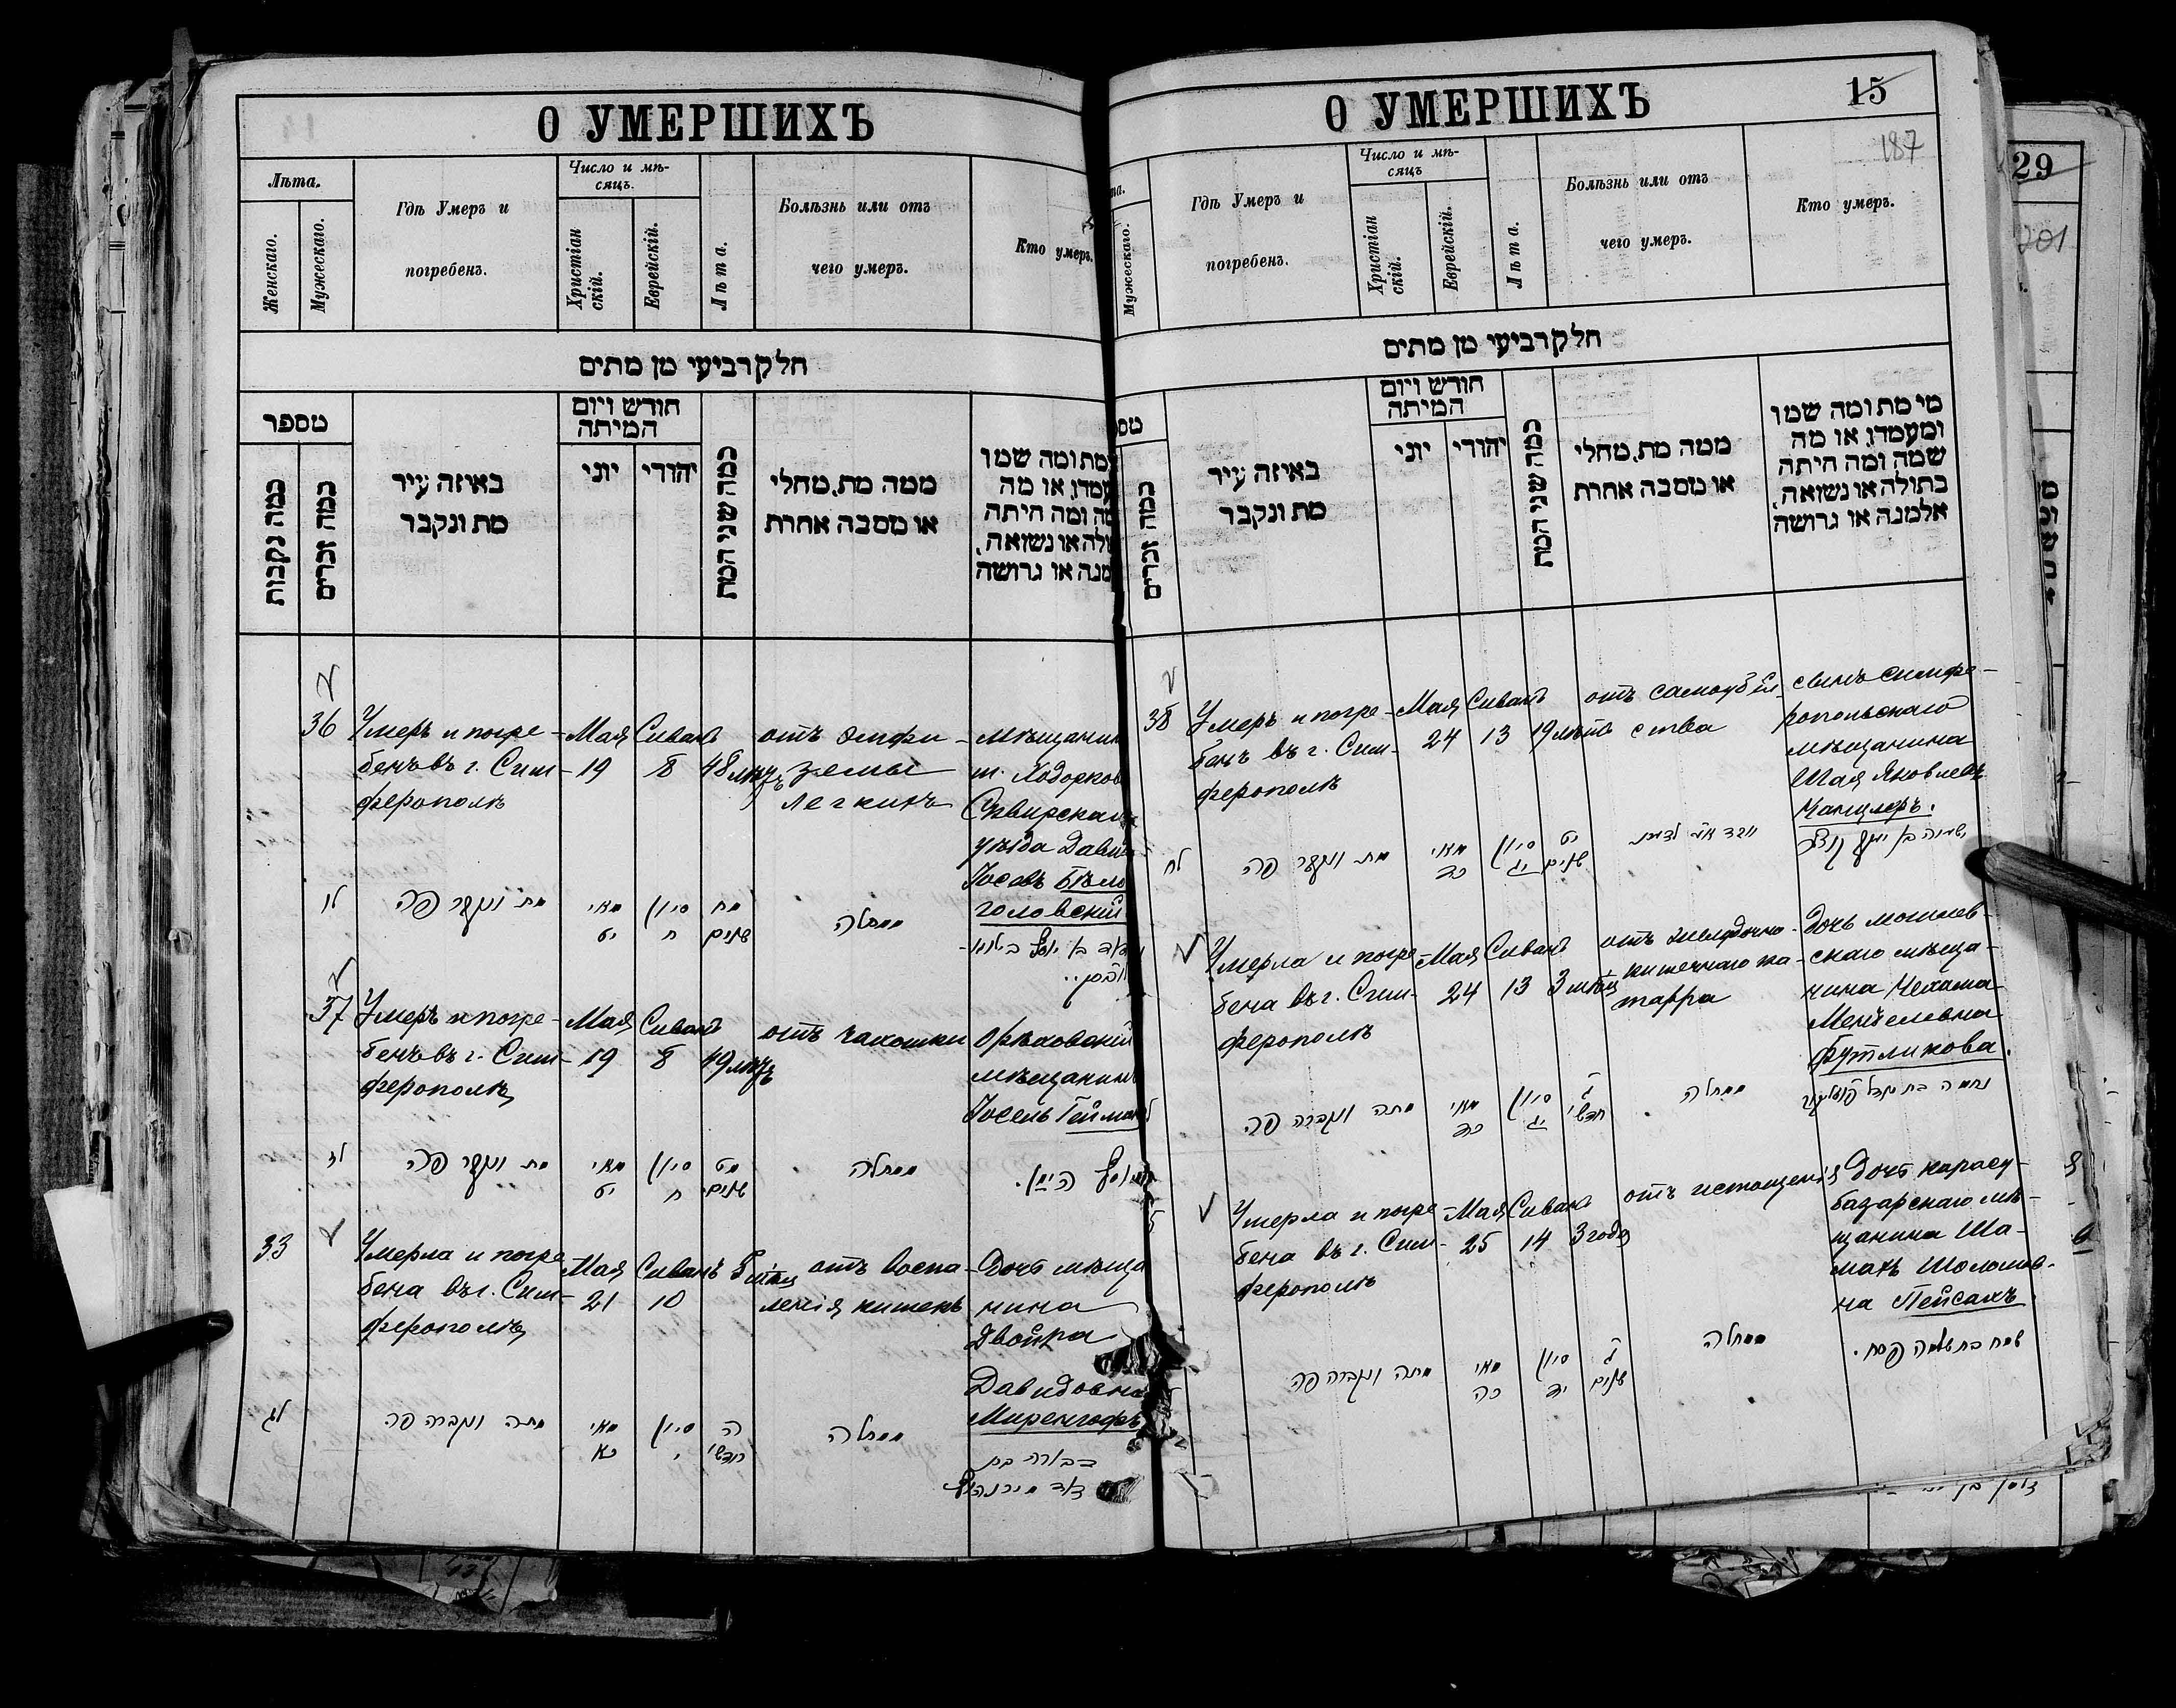 О УМЕРШИХЪ
Лѣта.
Женскаго.
Мужескаго.
Гдѣ Умеръ и
погребенъ.
Число и мѣ-
сяцъ.
Христіан
скій.
Еврейскій.
Лѣта.
Болѣзнь или отъ
чего умеръ.
Кто умеръ.
חלק רביעי מן מתים
מספר
כמה נקבות
כמה זכרים
באיזה עיר
מת ונקבר
חודש ויום
המיתה
יוני
יהודי
כמה שני המת
ממה מת, מחלי
או מסבה אחרת
מת ומה שמו
עמדו, או מה
מה ומה היתה
ולה או נשואה,
מנה או גרושה
36
Умеръ и погре-
бенъ въ г. Сим-
ферополѣ
Мая
19
Сиванъ
8
48 лѣтъ
отъ эмфи-
земы
легкихъ
мѣщанин
м. Ходорков
Сквирскаго
уѣзда Давид
Іосевъ Бѣло
головскій
לו
מת ונקבר פה
מאי
יט
סיון
ח
מח
שנים
ממחלה
37
Умеръ и погре-
бенъ въ г. Сим-
ферополѣ
Мая
19
Сиванъ
8
49 лѣтъ
отъ чахотки
Орѣховскій
мѣщанинъ
Іосель Гейман
לז
מת ונקבר פה
מאי
יט
סיון
ח
מט
שנים
ממחלה
יוסף היימן.
33
Умерла и погре
бена въ г. Сим-
ферополѣ
Мая
21
Сиванъ
10
5 мѣсяц
отъ воспа-
ленія кишекъ
Дочь мѣща
нина
Двойра
Давидовна
Миренгофъ
לג
מתה ונקברה פה
מאי
כא
סיון
י
ה
חדשי
ממחלה
דבורה בת
דוד מירנהוף
О УМЕРШИХЪ
15
187
та.
Мужескаго.
Гдѣ Умеръ и
погребенъ.
Число и мѣ-
сяцъ
Христіан
скій.
Еврейскій.
Лѣта.
Болѣзнь или отъ
чего умеръ.
Кто умеръ.
חלק רביעי מן מתים
מס
כמה זכרים
באיזה עיר
מת ונקבר
חודש ויום
המיתה
יוני
יהודי
כמה שני המת
ממה מת, מחלי
או מסבה אחרת
מי מת ומה שמו
ומעמדו, או מה
שמה ומה היתה
בתולה או נשואה,
אלמנה או גרושה
38
Умеръ и погре-
бенъ въ г. Сим-
ферополѣ
Мая
24
Сиванъ
13
19 лѣтъ
отъ самоубій
ства
сынъ симфе-
ропольскаго
мѣщанина
Шая Яковлевъ
Канцлеръ.
לח
מת ונקבר פה
מאי
כד
סיון
יג
יט
שנים
Умерла и погре-
бена въ г. Сим-
ферополѣ
Мая
24
Сиванъ
13
3 мѣсяц
отъ желудочно-
кишечнаго ка-
тарра
Дочь могилев-
скаго мѣща-
нина Нехама
Менделевна
Футликова.
מתה ונקברה פה
מאי
כד
סיון
יג
ג
חדשי
ממחלה
Умерла и погре-
бена въ г. Сим-
ферополѣ
Мая
25
Сиванъ
14
3 года
отъ истощенія
Дочь карасу-
базарскаго мѣ-
щанина Ша-
махъ Шоломов-
на Пейсахъ.
מתה ונקברה פה
מאי
כה
סיון
יד
ג
שנים
ממחלה
שמח בת שלמה פסח.
29
201